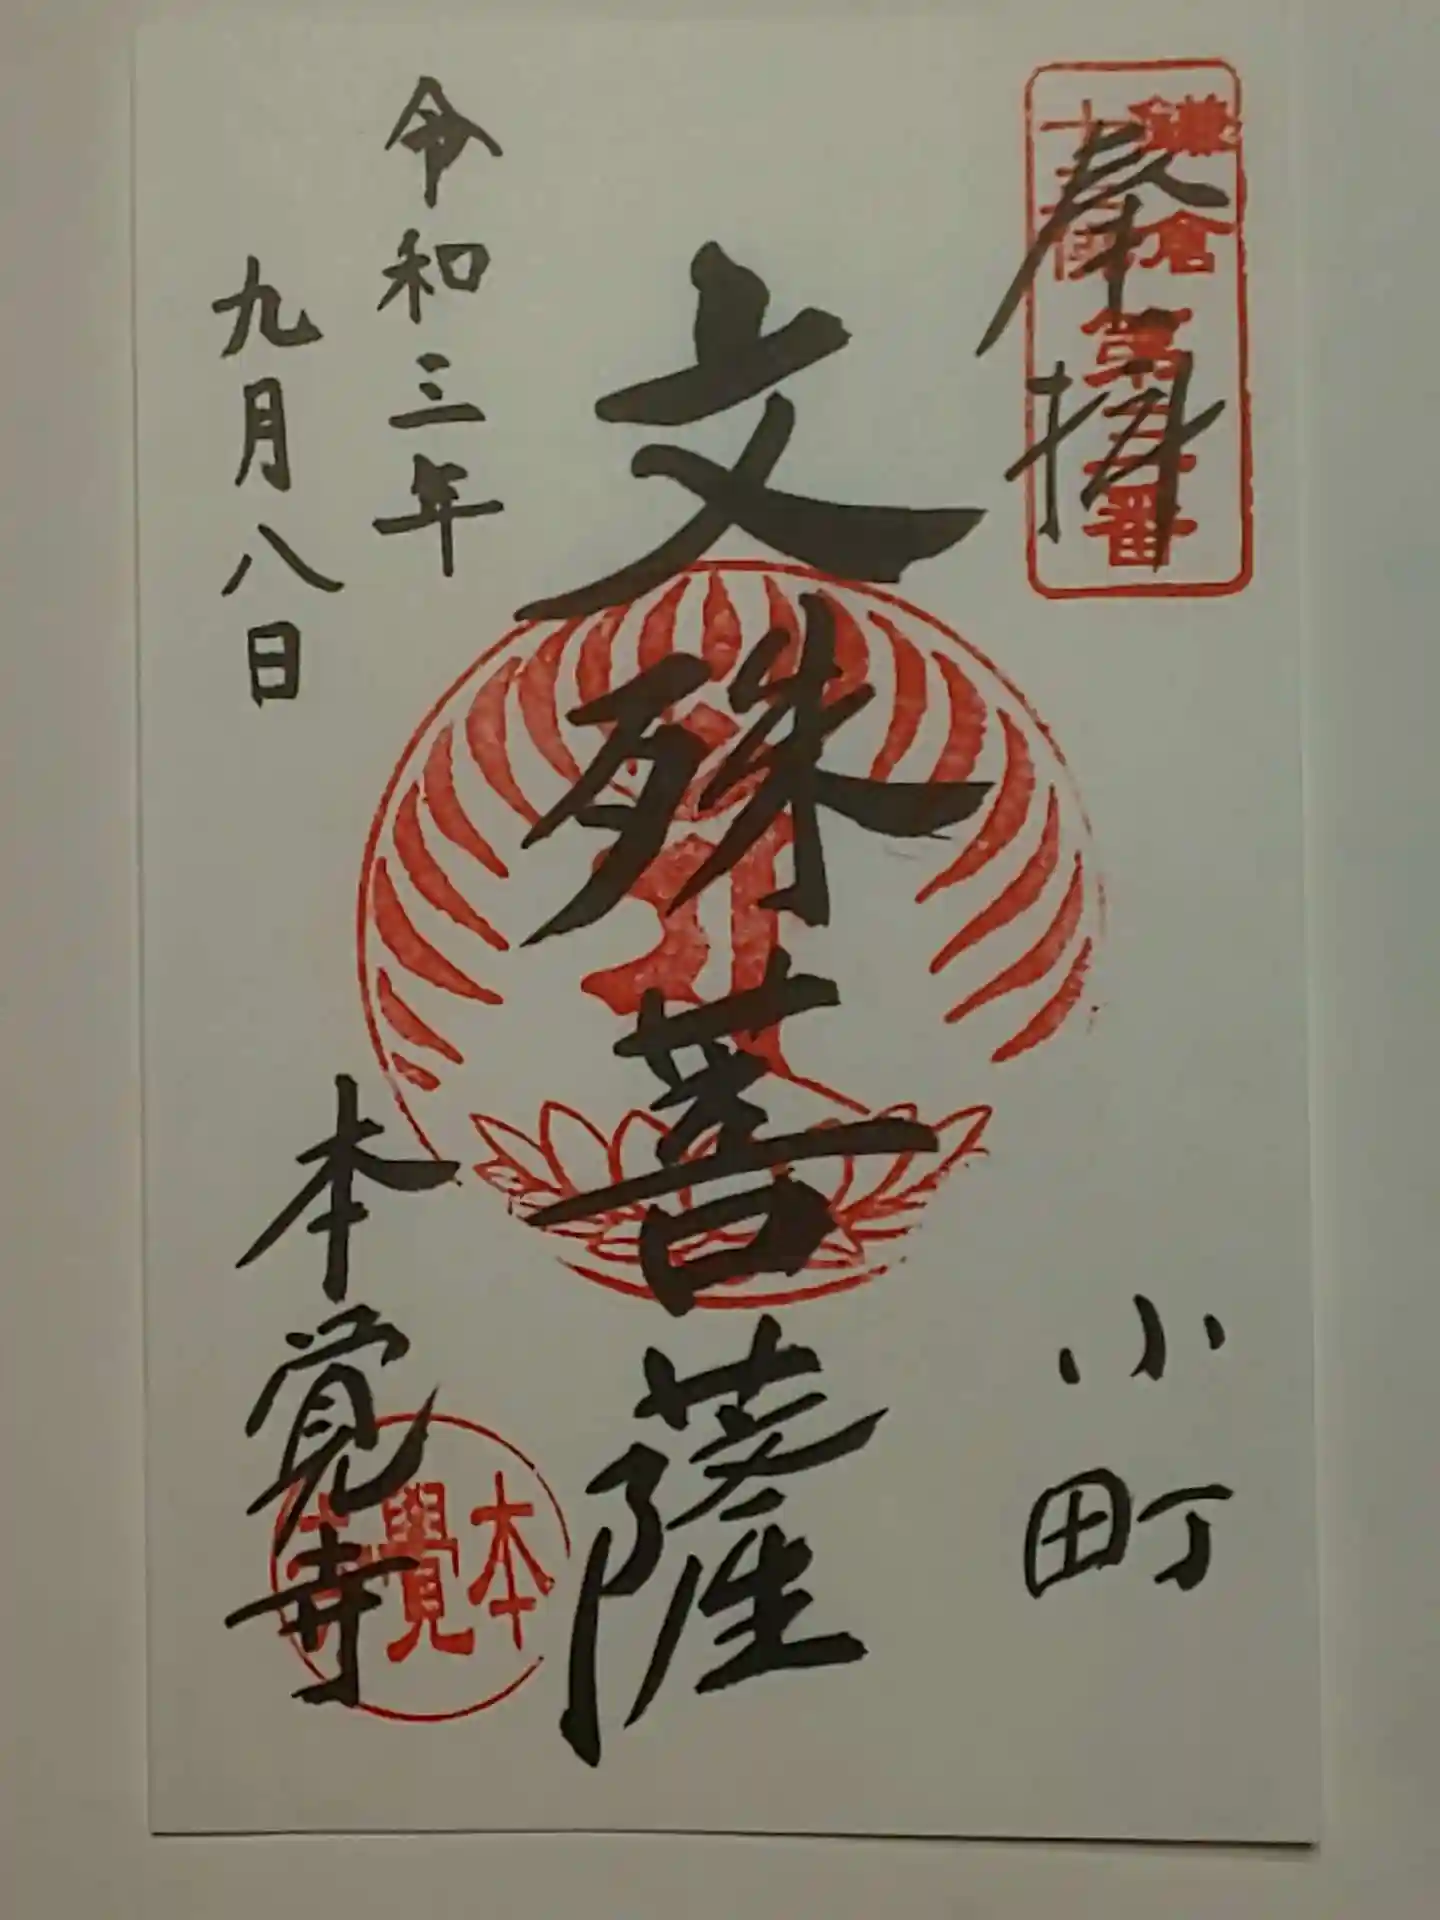 奉拝
鎌倉
十三佛
第三番
小町
文殊菩薩
令和三年
九月八日
本覚寺
本覺寺